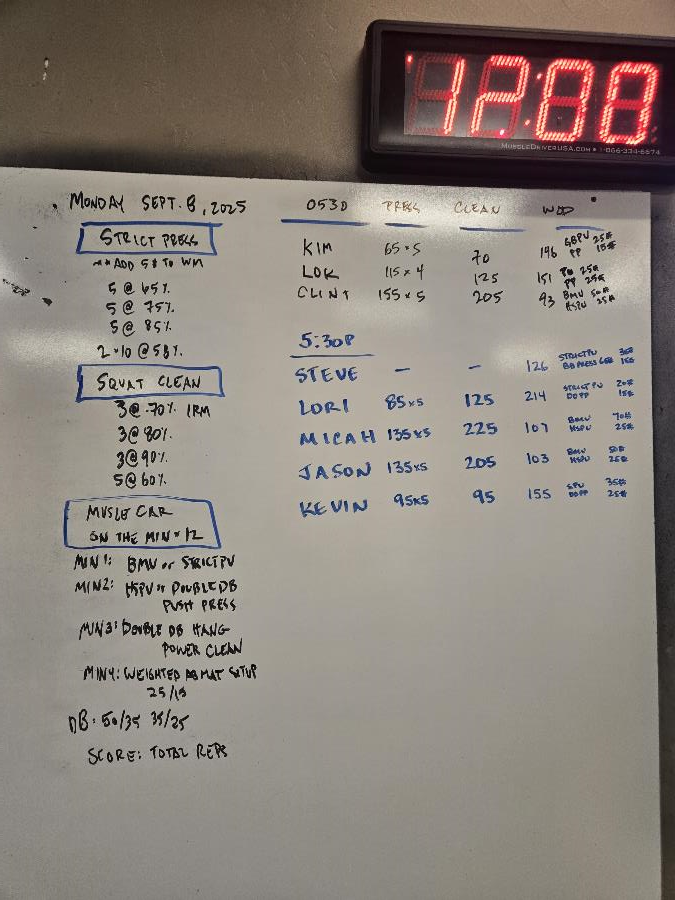 12:00
MUSCLEDRIVERUSA.COM • 1-866-334-6574
MONDAY SEPT. 8, 2025
STRICT PRESS
** ADD 5# TO WM
5 @ 65%
5 @ 75%
5 @ 85%
2 × 10 @ 58%
SQUAT CLEAN
3 @ 70% 1RM
3 @ 80%
3 @ 90%
5 @ 60%
MUSLE CAR
ON THE MIN × 12
MIN 1: BMU or STRICT PU
MIN 2: HSPU or DOUBLE DB
PUSH PRESS
MIN 3: DOUBLE DB HANG
POWER CLEAN
MIN 4: WEIGHTED ABMAT SITUP
25/15
DB: 50/35 35/25
SCORE: TOTAL REPS
0530 PRESS CLEAN WOD
KIM 65×5 70 146 GBPU 25# PP 15#
LOK 115×4 125 151 PU 25# PP 25#
CLINT 155×5 205 93 BMU 50# HSPU 25#
5:30P
STEVE — — 126 STRICT PU 35#
LORI 85×5 125 214 STRICT PU 20# DDPP 15#
MICAH 135×5 225 107 BMU 70# HSPU 25#
JASON 135×5 205 103 BMU 50# HSPU 25#
KEVIN 95×5 95 155 SPU 35# DDPP 25#